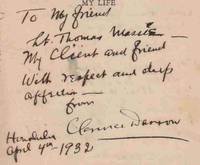 MY LIFE
To My friend
Lt. Thomas Massie -
My Client and friend
With respect and deep
affection -
from
Clarence Darrow
Honolulu
April 4th 1932